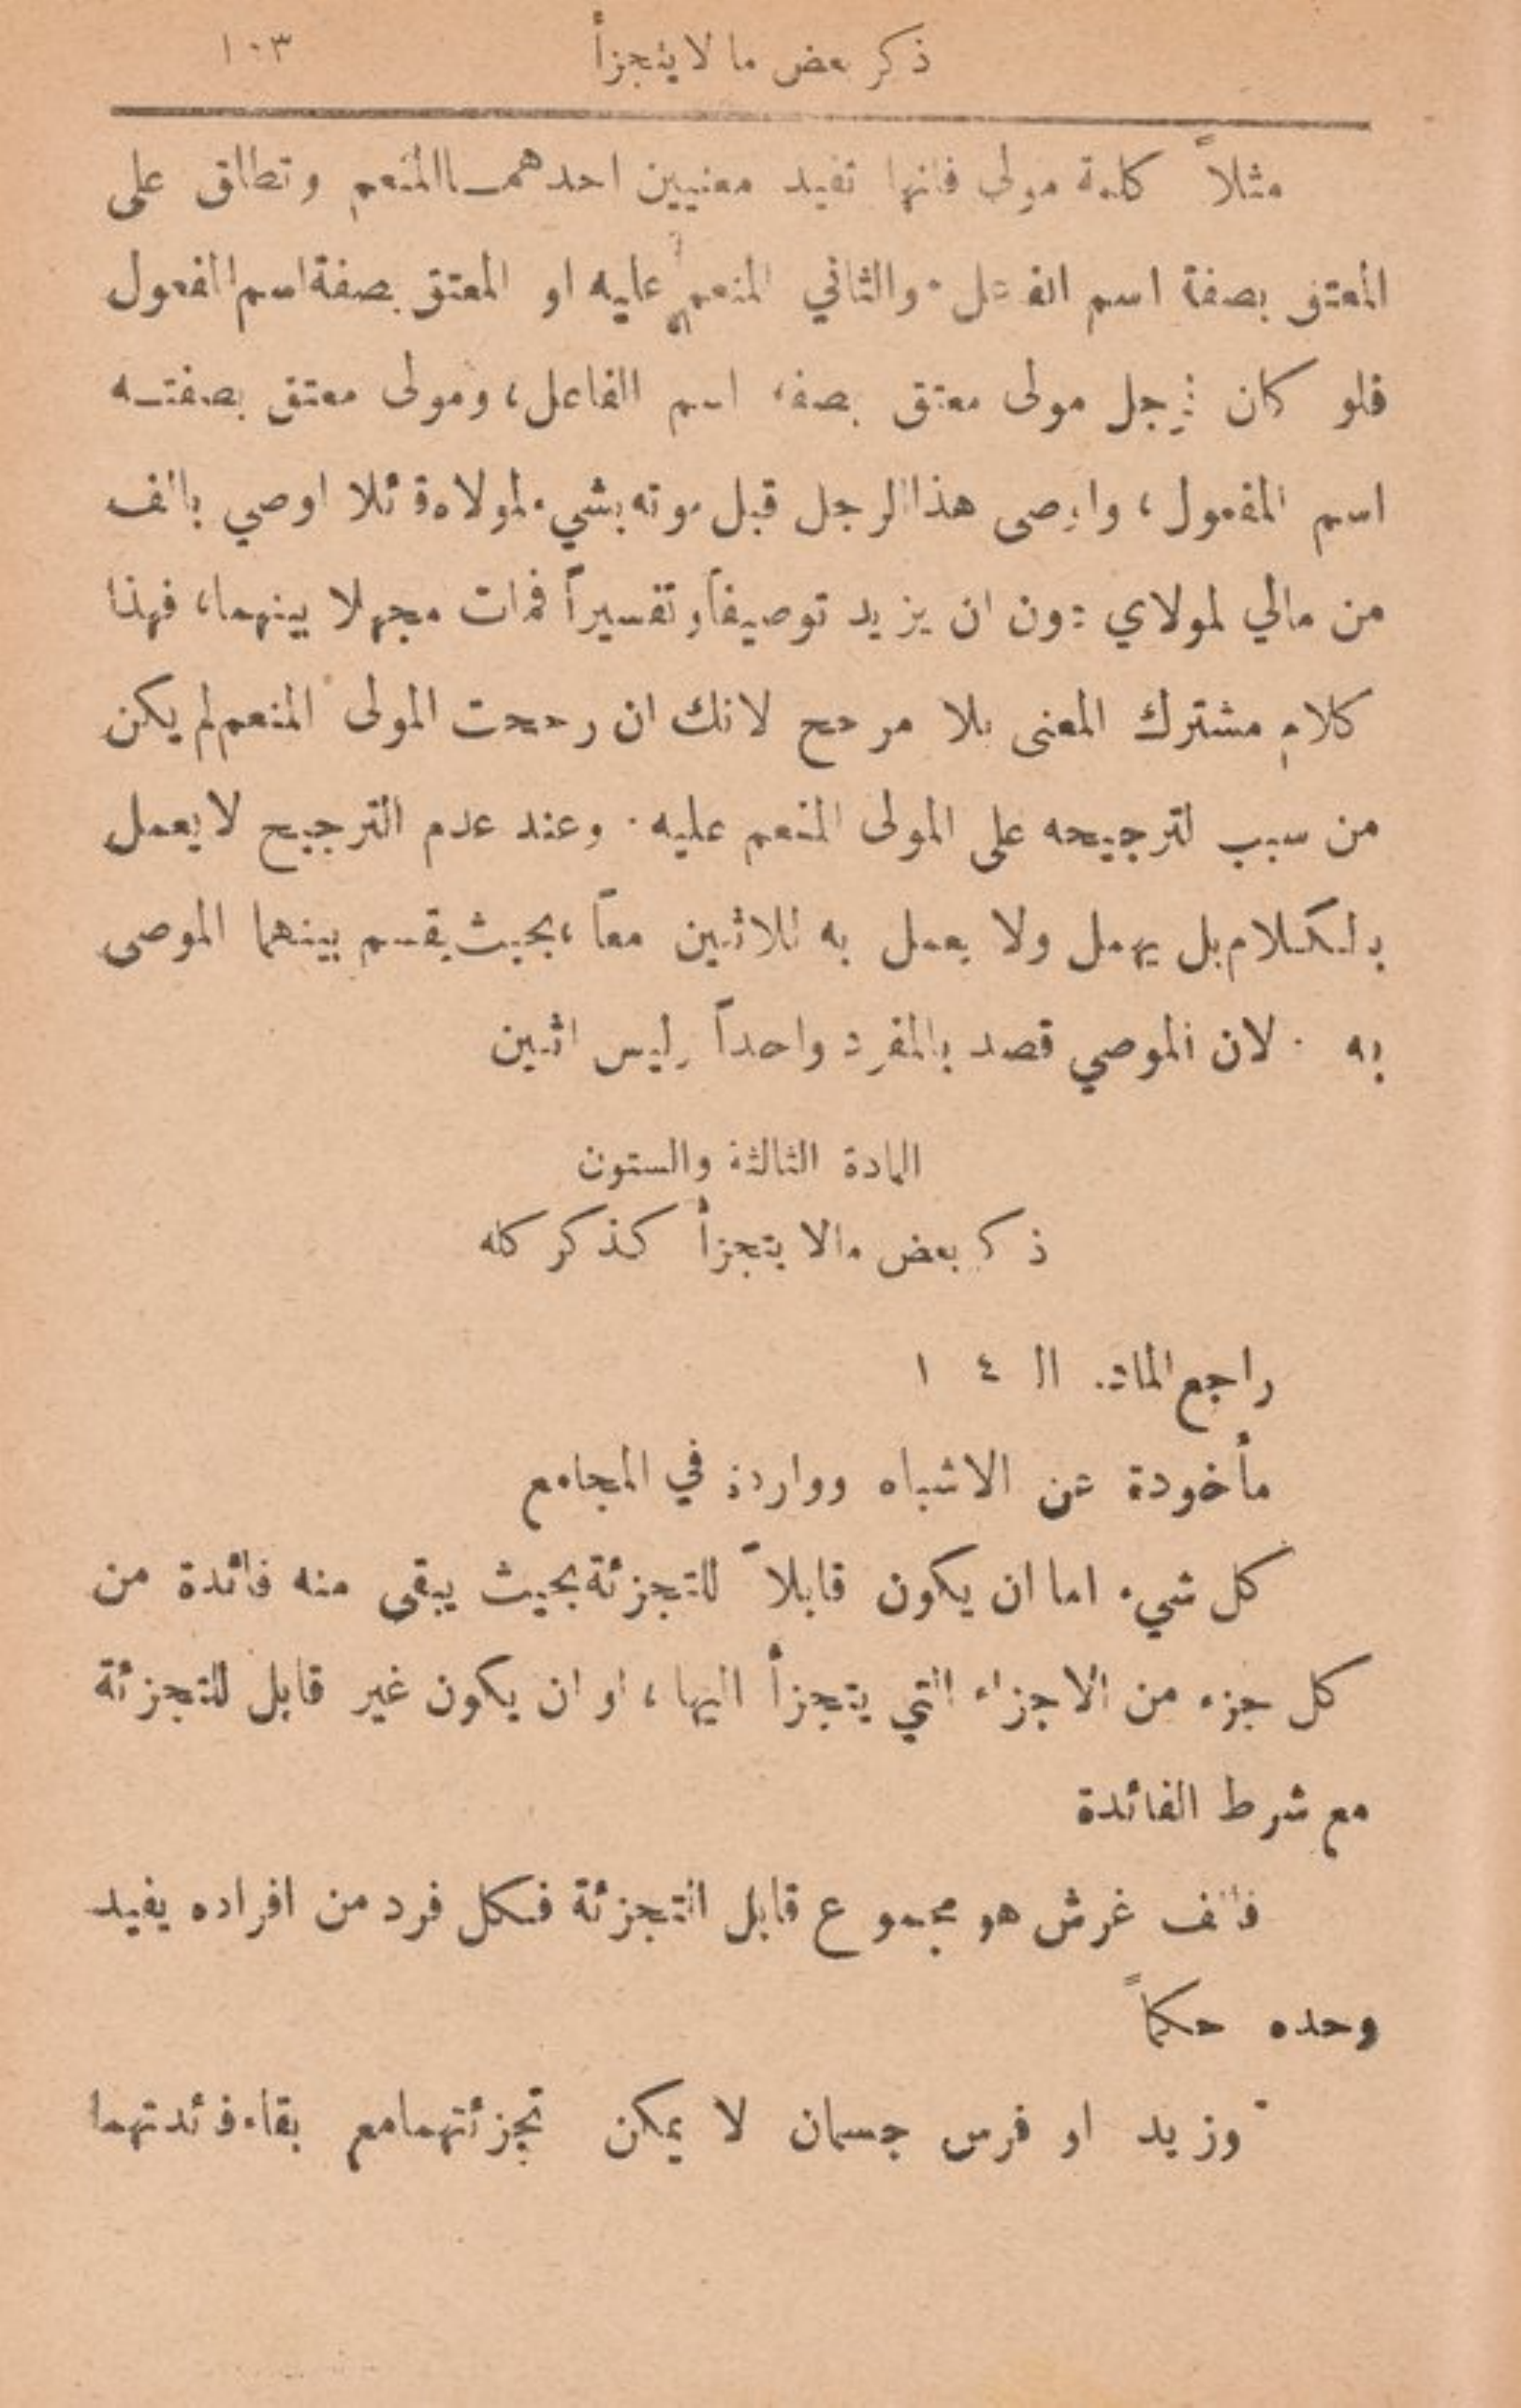 ذكر بعض ما لا يتجزأ ١٠٣
مثلاً كلمة مولى فانها تفيد معنيين احدهمـا المنعم وتطلق على
المعتق بصفة اسم الفاعل· والثاني المنعم عليه او المعتق بصفة اسم المفعول
فلو كان لرجل مولى معتق بصفة اسم الفاعل، ومولى معتق بصفتـه
اسم المفعول، واوصى هذا الرجل قبل موته بشيء لمولاه قائلا اوصي بالف
من مالي لمولاي دون ان يزيد توصيفاً وتفسيراً فمات مجهلا بينهما، فهذا
كلام مشترك المعنى بلا مرجح لانك ان رجحت المولى المنعم لم يكن
من سبب لترجيحه على المولى المنعم عليه · وعند عدم الترجيح لا يعمل
بالكلام بل يهمل ولا يعمل به للاثنين معاً، بحيث يقسم بينهما الموصى
به · لان الموصي قصد بالمفرد واحداً وليس اثنين
المادة الثالثة والستون
ذكر بعض مالا يتجزأ كذكر كله
راجع المادة الـ ٤ ١
مأخوذة عن الاشباه وواردة في المجامع
كل شيء اما ان يكون قابلاً للتجزئة بحيث يبقى منه فائدة من
كل جزء من الاجزاء التي يتجزأ اليها، او ان يكون غير قابل للتجزئة
مع شرط الفائدة
فالف غرش هو مجموع قابل التجزئة فكل فرد من افراده يفيد
وحده حكماً
وزيد او فرس جسمان لا يمكن تجزئتهما مع بقاء فائدتهما